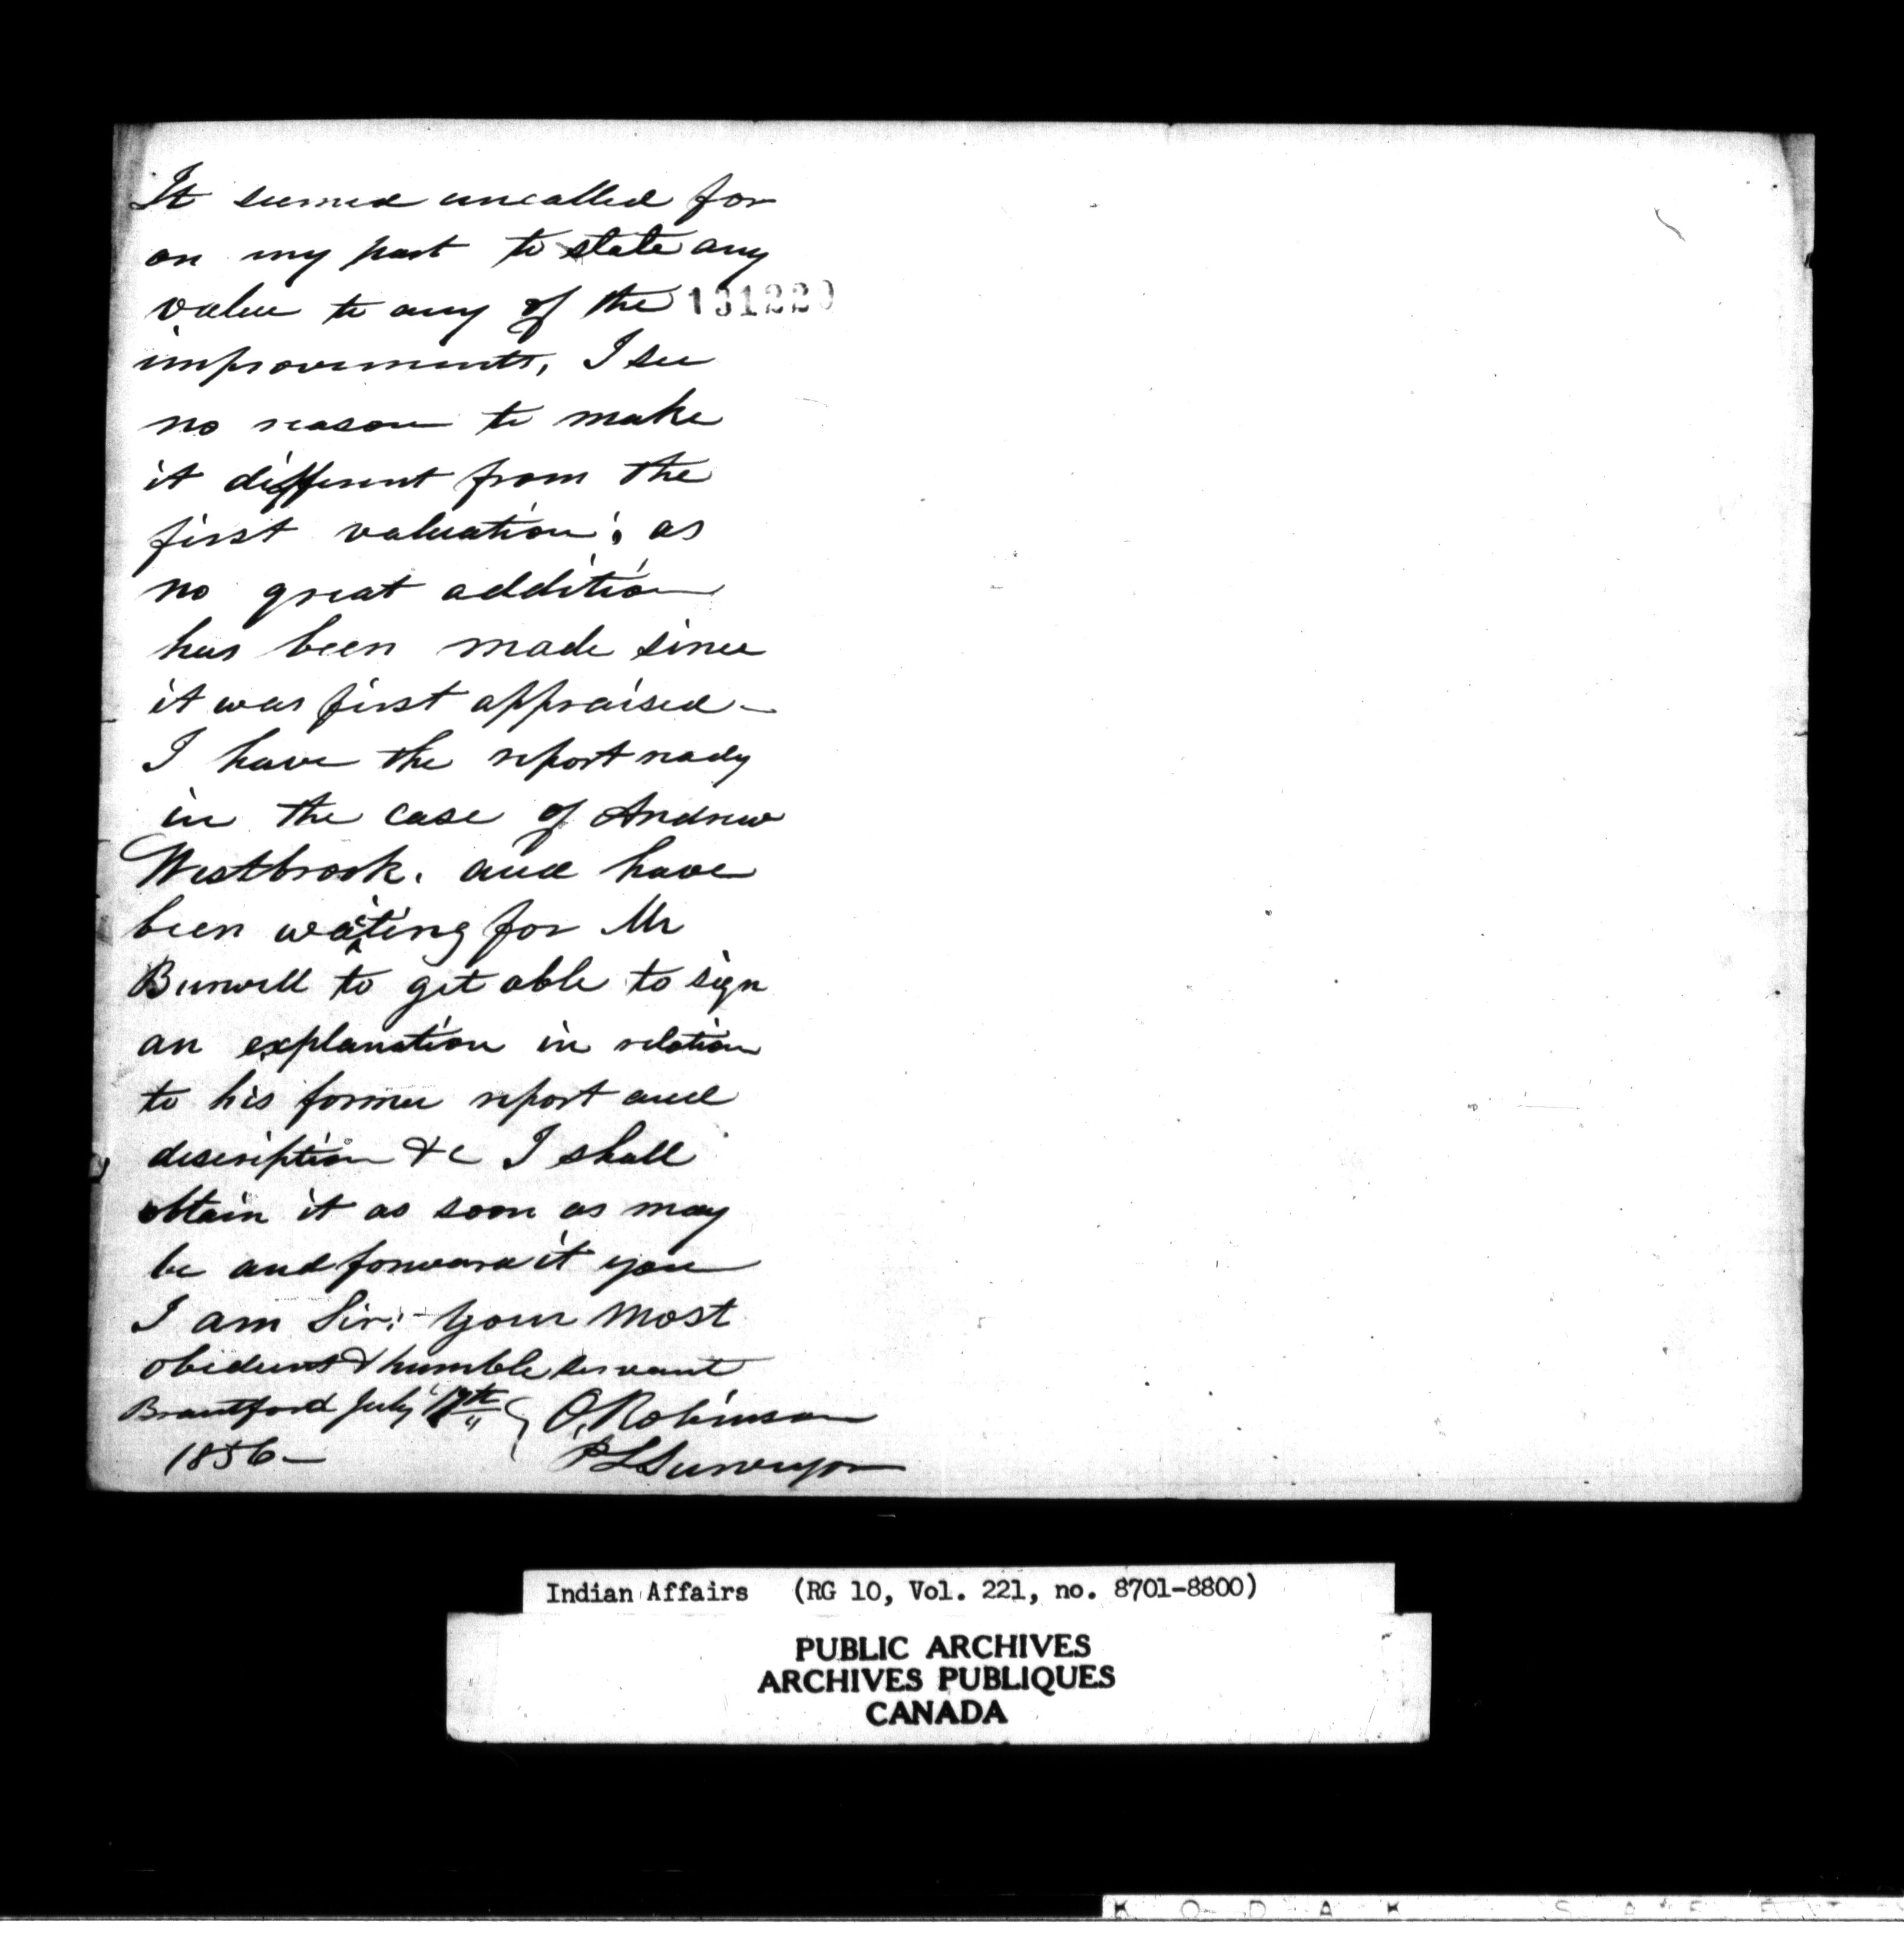 It seemed uncalled for
on my part to state any
value to any of the 131220
improvements, I see
no reason to make
it different from the
first valuation; as
no great addition
has been made since
it was first appraised -
I have the report ready
in the case of Andrew
Westbrook. and have
been waiting for Mr
Burwell to get able to sign
an explanation in relation
to his former report and
description &c I shall
obtain it as soon as may
be and forward it you
I am Sir: - your most
obedient & humble servant
Brantford July O. Robinson
1856 - P L Surveyor
Indian Affairs (RG 10, Vol. 221, no. 8701-8800)
PUBLIC ARCHIVES
ARCHIVES PUBLIQUES
CANADA
KODAK SAFETY